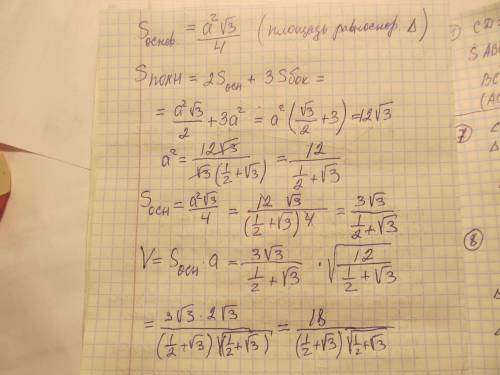 Sоснов. = a²√3/4 (площадь равностор. Δ)
Sполн = 2Sосн + 3Sбок =
= a²√3/2 + 3a² = a²(√3/2 + 3) = 12√3
a² = 12√3/(√3(1/2 + √3)) = 12/(1/2 + √3)
Sосн = a²√3/4 = 12 √3/((1/2 + √3) 4) = 3√3/(1/2 + √3)
V = Sосн · a = 3√3/(1/2 + √3) · √(12/(1/2 + √3))
= 3√3 · 2√3/((1/2 + √3)√(1/2 + √3)) = 18/((1/2 + √3)√(1/2 + √3))
3)
CD=
SABC
BC
(AC
7
C
Δ
8